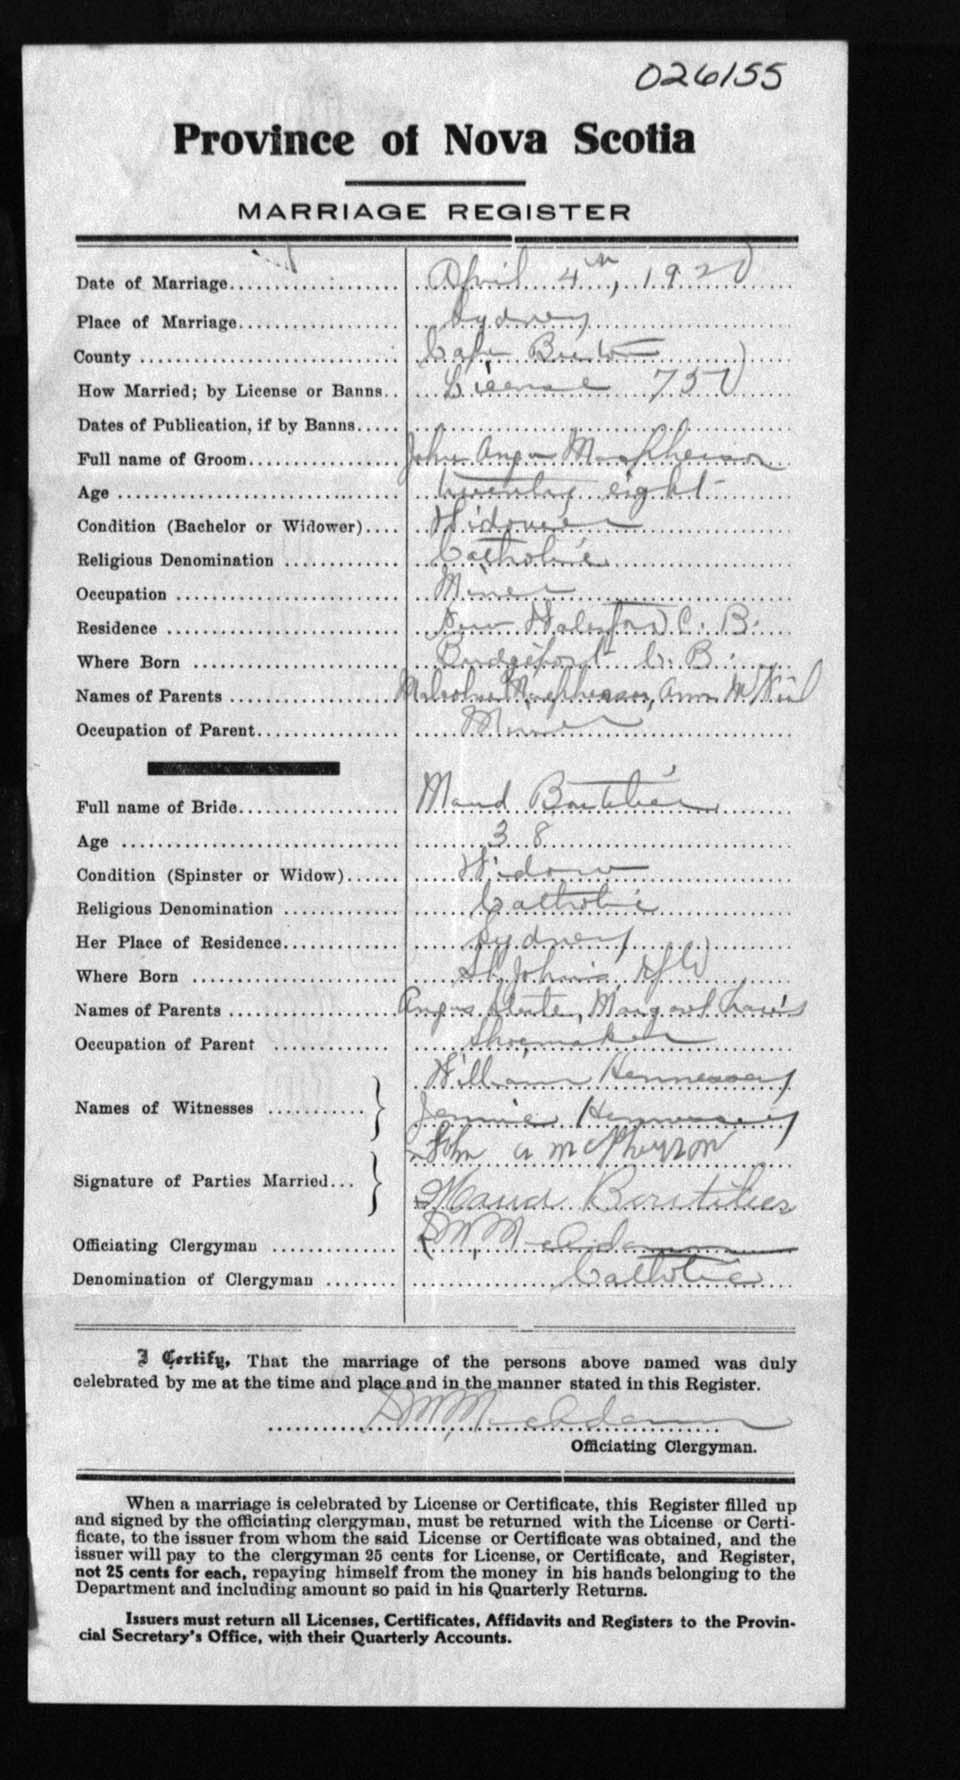 026155
Province of Nova Scotia
MARRIAGE REGISTER
Date of Marriage April 4th, 1920
Place of Marriage Sydney
County Cape Breton
How Married; by License or Banns License 750
Dates of Publication, if by Banns
Full name of Groom John Angus Macpherson
Age twenty eight
Condition (Bachelor or Widower) Widower
Religious Denomination Catholic
Occupation Miner
Residence New Waterford C. B.
Where Born Bridgeport C. B.
Names of Parents Malcolm Macpherson, Ann McNeil
Occupation of Parent Miner
Full name of Bride Maud Boutilier
Age 38
Condition (Spinster or Widow) Widow
Religious Denomination Catholic
Her Place of Residence Sydney
Where Born St. John's Nfld
Names of Parents Angus Margaret
Occupation of Parent Shoemaker
William Hennessey
Names of Witnesses
Jennie Hennessey
John A McPherson
Signature of Parties Married
Maud Boutilier
Officiating Clergyman D M McAdam
Denomination of Clergyman Catholic
I Certify, That the marriage of the persons above named was duly
celebrated by me at the time and place and in the manner stated in this Register.
D M McAdam
Officiating Clergyman.
When a marriage is celebrated by License or Certificate, this Register filled up
and signed by the officiating clergyman, must be returned with the License or Certi-
ficate, to the issuer from whom the said License or Certificate was obtained, and the
issuer will pay to the clergyman 25 cents for License, or Certificate, and Register,
not 25 cents for each, repaying himself from the money in his hands belonging to the
Department and including amount so paid in his Quarterly Returns.
Issuers must return all Licenses, Certificates, Affidavits and Registers to the Provin-
cial Secretary's Office, with their Quarterly Accounts.